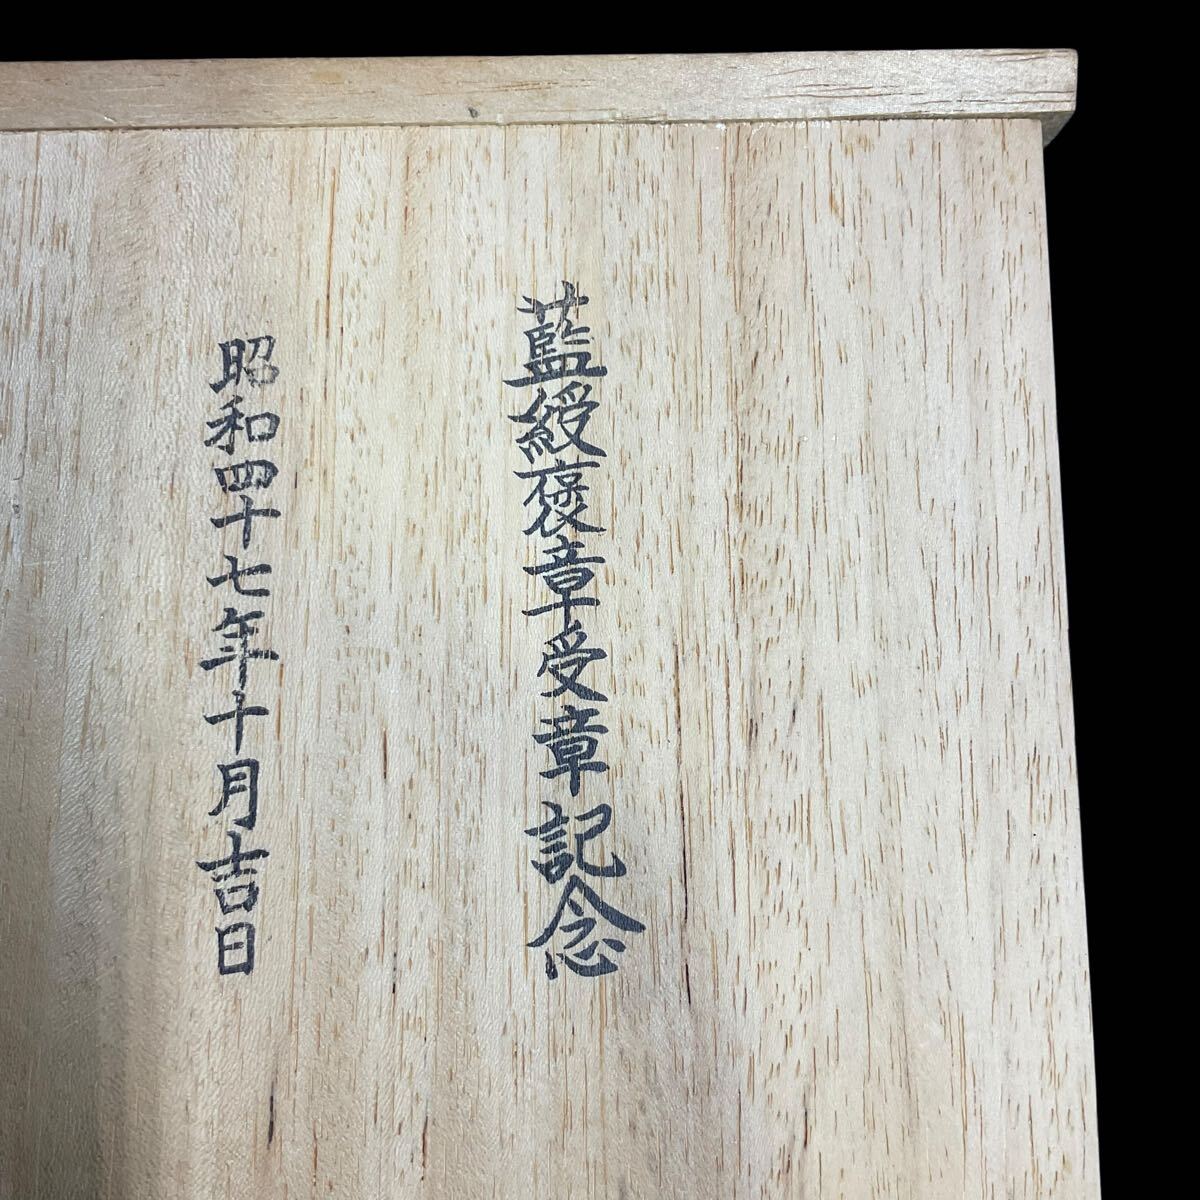 藍綬褒章受章記念
昭和四十七年十月吉日